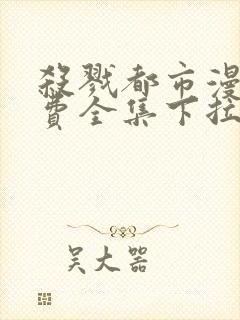 殺戮都市漫
費全集下拉
吴大器